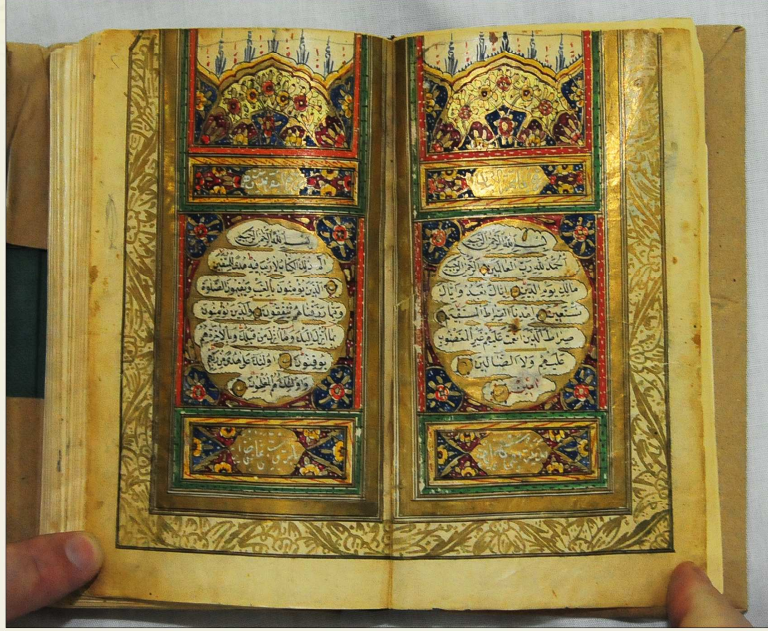 بسم الله الرحمن الرحيم
الحمد لله رب العالمين الرحمن الرحيم
مالك يوم الدين اياك نعبد واياك
نستعين اهدنا الصراط المستقيم
صراط الذين انعمت عليهم غير المغضوب
عليهم ولا الضالين
بسم الله الرحمن الرحيم
الم ذلك الكتاب لا ريب فيه هدى للمتقين
الذين يؤمنون بالغيب ويقيمون الصلوة
ومما رزقناهم ينفقون والذين يؤمنون
بما انزل اليك وما انزل من قبلك وبالاخرة هم
يوقنون اولئك على هدى من ربهم
واولئك هم المفلحون